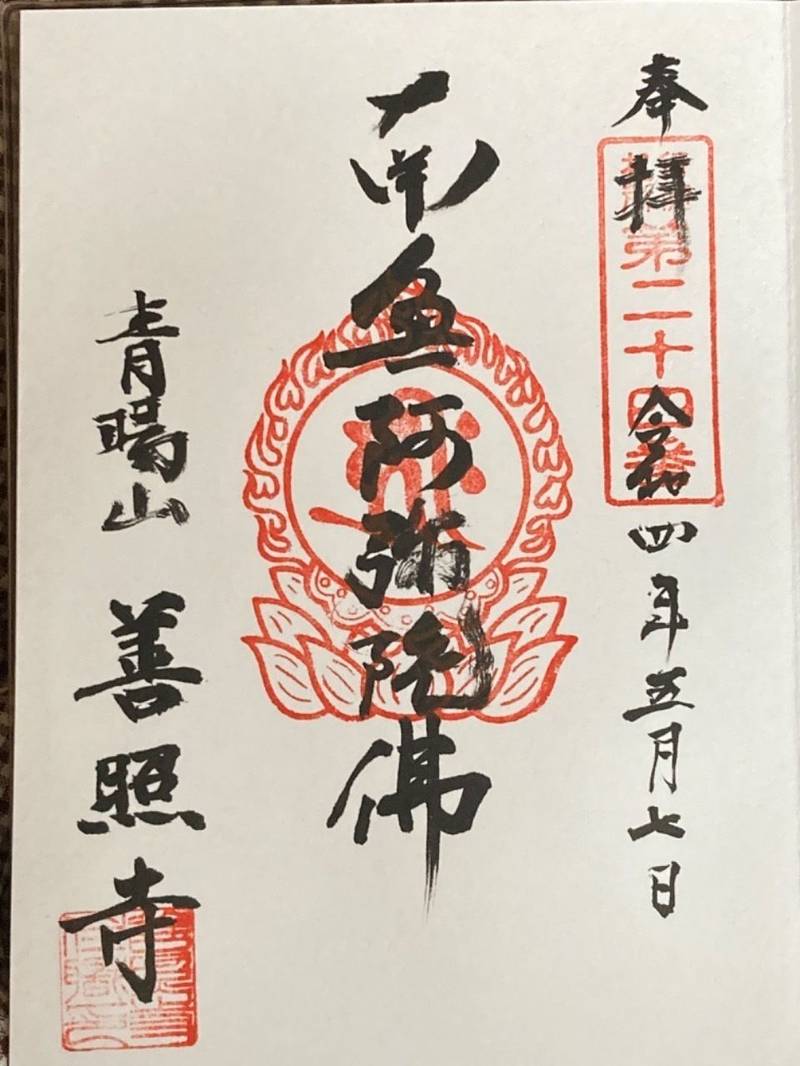 奉拝
第二十四番
令和四年五月七日
南無阿弥陀佛
青陽山
善照寺